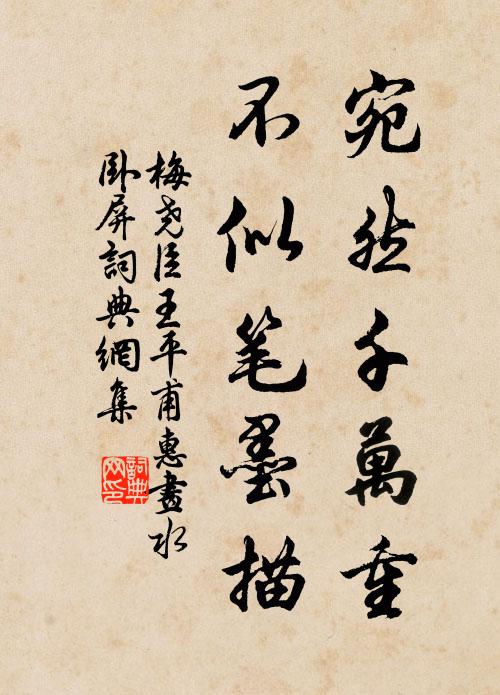 宛然千萬重
不似笔墨描
梅尧臣王平甫惠畫水
卧屏詞典網集
詞典網印